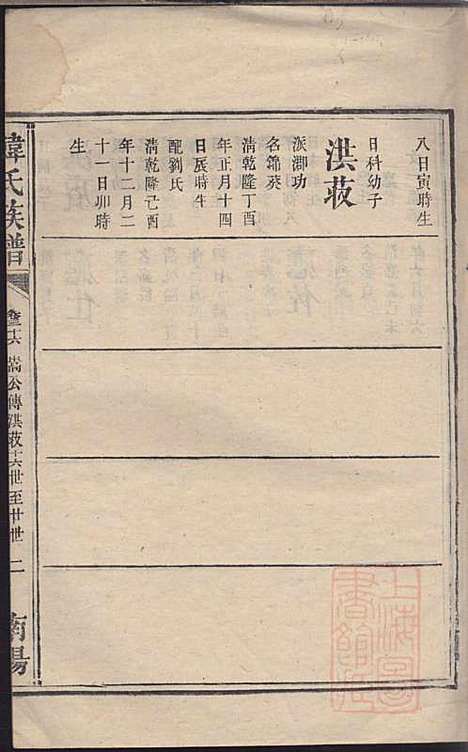 八日寅時生
日科幼子
洪荍
派澍功
名錦葵
清乾隆丁酉
年正月十四
日辰時生
配劉氏
清乾隆己酉
年十二月二
十一日卯時
生
韓氏族譜
嵩公傳洪荍
世至廿世
二
南陽
上海圖
書館藏